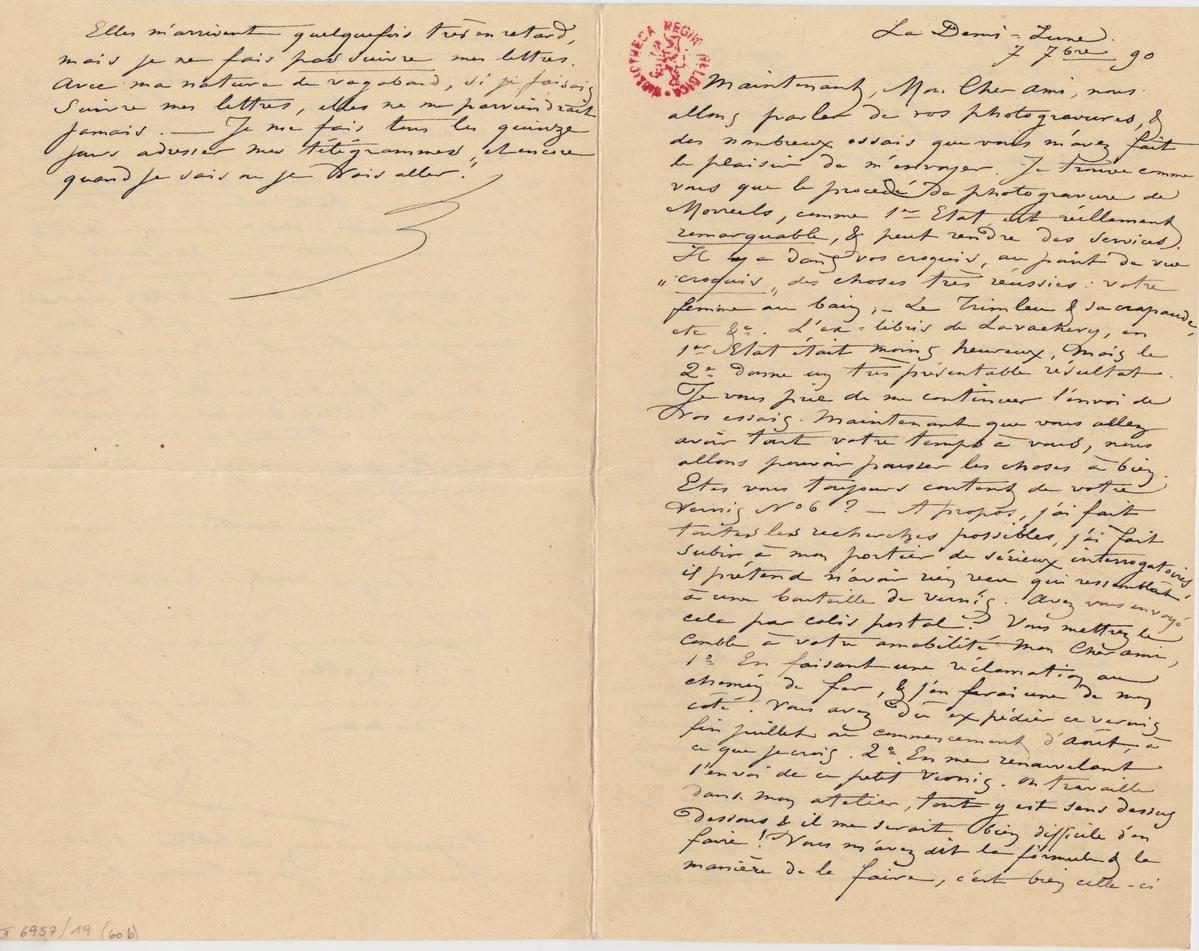 Elles m'arrivent quelquefois très en retard,
mais je ne fais pas suivre mes lettres.
Avec ma nature de vagabond, si je faisais
suivre mes lettres, elles ne me parviendrait
jamais. — Je me fais tous les quinze
jours adresser mes télégrammes, et encore
quand je sais ou je vais aller.
La Demi-Lune.
7 7bre 90
Maintenant, Mon Cher ami, nous
allons parler de vos photogravures, &
des nombreux essais que vous m'avez fait
le plaisir de m'envoyer. Je trouve comme
vous que le procédé de photogravure de
Morreels, comme 1er Etat est réellement
remarquable, & peut rendre des services.
Il y a dans vos croquis, au point de vue
„croquis„ des choses très réussies : votre
femme au bain, – Le Trimleu & sa crapaude,
etc &a. L'ex-libris de Lavachery, en
1er Etat était moins heureux, mais le
2e donne un très présentable résultat.
Je vous prie de me continuer l'envoi de
vos essais. Maintenant que vous allez
avoir tout votre temps à vous, nous
allons pouvoir pousser les choses à bien.
Etes vous toujours content de votre
vernis No 6 ? – A propos, j'ai fait
toutes les recherches possibles, j'ai fait
subir à mon portier de sérieux interrogatoires
il prétend n'avoir rien reçu qui ressemblât
à une bouteille de vernis. Avez vous envoyé
cela par colis postal ? Vous mettrez le
comble à votre amabilité Mon Cher ami,
1o En faisant une réclamation au
chemin de fer, & j'en ferai une de mon
coté. Vous avez dû expédier ce vernis
fin juillet ou commencement d'Août, à
ce que je crois. 2o En me renouvelant
l'envoi de ce petit vernis. On travaille
dans mon atelier, tout y est sens dessus
dessous & il me serait bien difficile d'en
faire ! Vous m'avez dit la formule & la
manière de le faire, c'est bien celle-ci
BIBLIOTHECA REGIA BELGICA
II 6957/19 (60b)